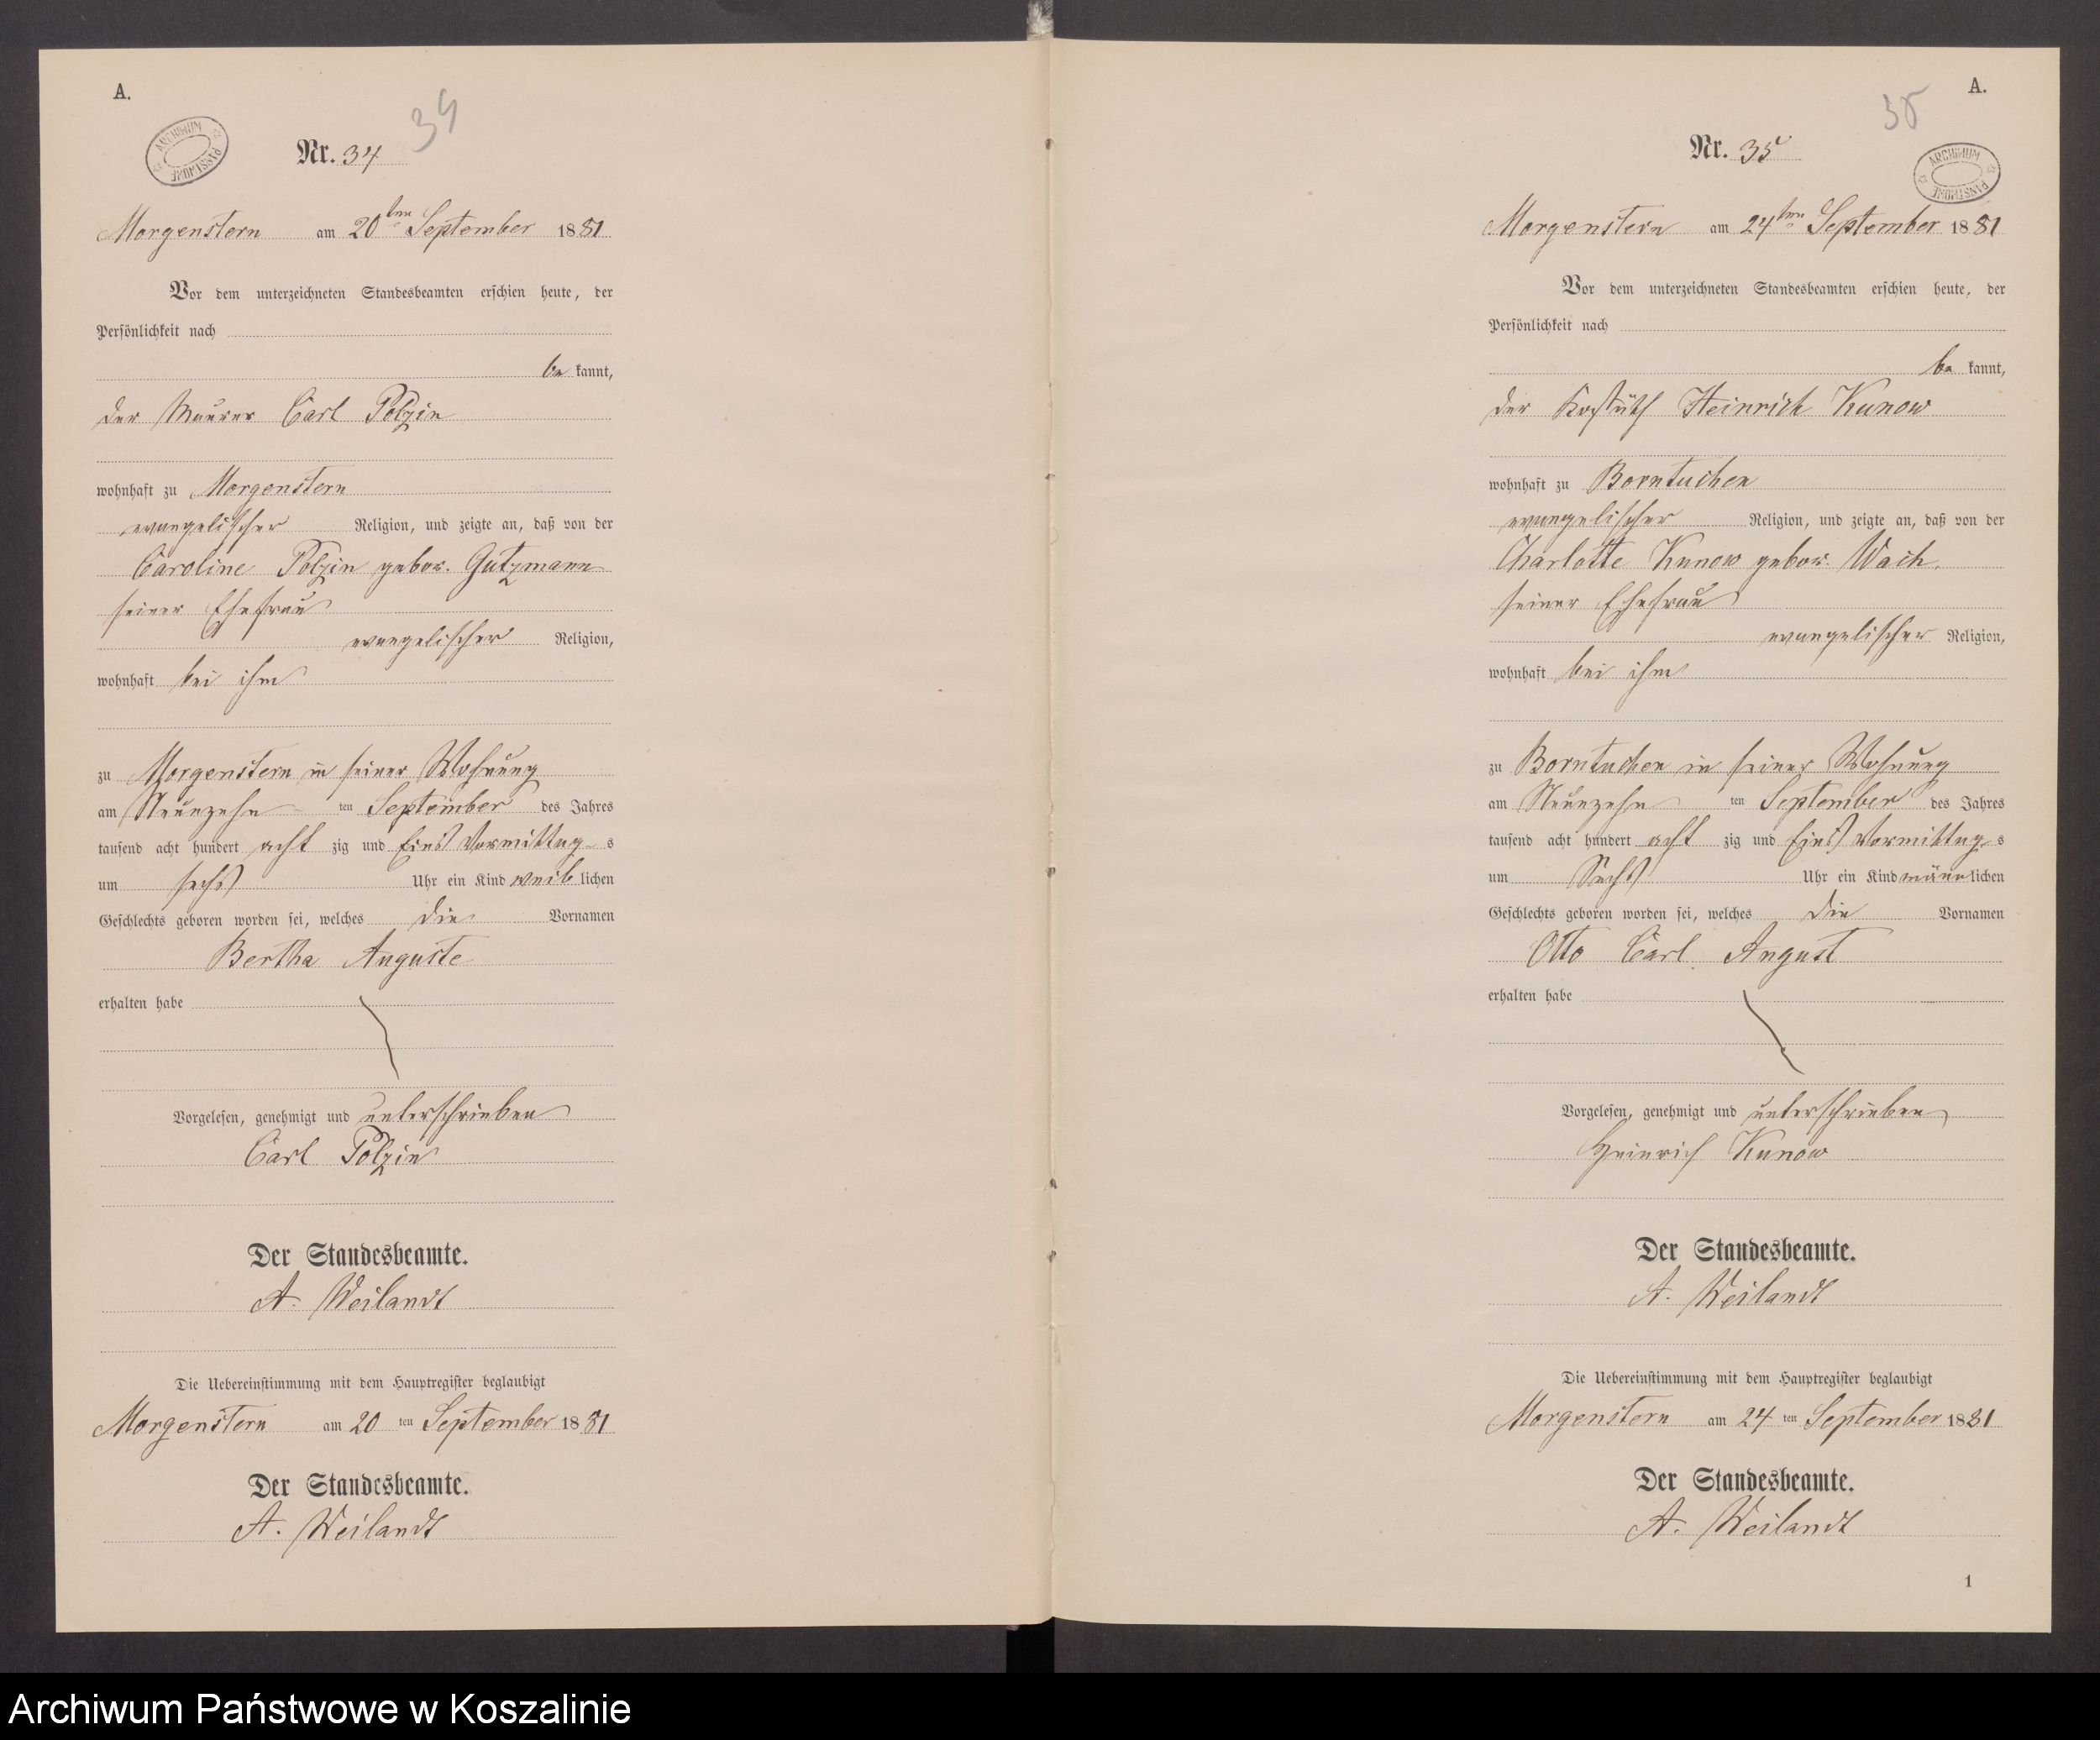 A.
34
ARCHIWUM PAŃSTWOWE
Nr. 34
Morgenstern am 20ten September 1881
Vor dem unterzeichneten Standesbeamten erschien heute, der
Persönlichkeit nach
be kannt,
der Maurer Carl Polzin
wohnhaft zu Morgenstern
evangelischer Religion, und zeigte an, daß von der
Caroline Polzin gebor. Gutzmann
seiner Ehefrau
evangelischer Religion,
wohnhaft bei ihm
zu Morgenstern in seiner Wohnung
am Neunzehn ten September des Jahres
tausend acht hundert acht zig und Eins Vormittag s
um sechs Uhr ein Kind weib lichen
Geschlechts geboren worden sei, welches die Vornamen
Bertha Auguste
erhalten habe
Vorgelesen, genehmigt und unterschrieben
Carl Polzin
Der Standesbeamte.
A. Weilandt
Die Uebereinstimmung mit dem Hauptregister beglaubigt
Morgenstern am 20 ten September 1881
Der Standesbeamte.
A. Weilandt
A.
35
ARCHIWUM PAŃSTWOWE
Nr. 35
Morgenstern am 24ten September 1881
Vor dem unterzeichneten Standesbeamten erschien heute, der
Persönlichkeit nach
be kannt,
der Heinrich Kunow
wohnhaft zu Borntuchen
evangelischer Religion, und zeigte an, daß von der
Charlotte Kunow gebor. Wach.
seiner Ehefrau
evangelischer Religion,
wohnhaft bei ihm
zu Borntuchen in seiner Wohnung
am Neunzehn ten September des Jahres
tausend acht hundert acht zig und Eins Vormittag s
um Sechs Uhr ein Kind männ lichen
Geschlechts geboren worden sei, welches die Vornamen
Otto Carl August
erhalten habe
Vorgelesen, genehmigt und unterschrieben
Heinrich Kunow
Der Standesbeamte.
A. Weilandt
Die Uebereinstimmung mit dem Hauptregister beglaubigt
Morgenstern am 24 ten September 1881
Der Standesbeamte.
A. Weilandt
1
Archiwum Państwowe w Koszalinie